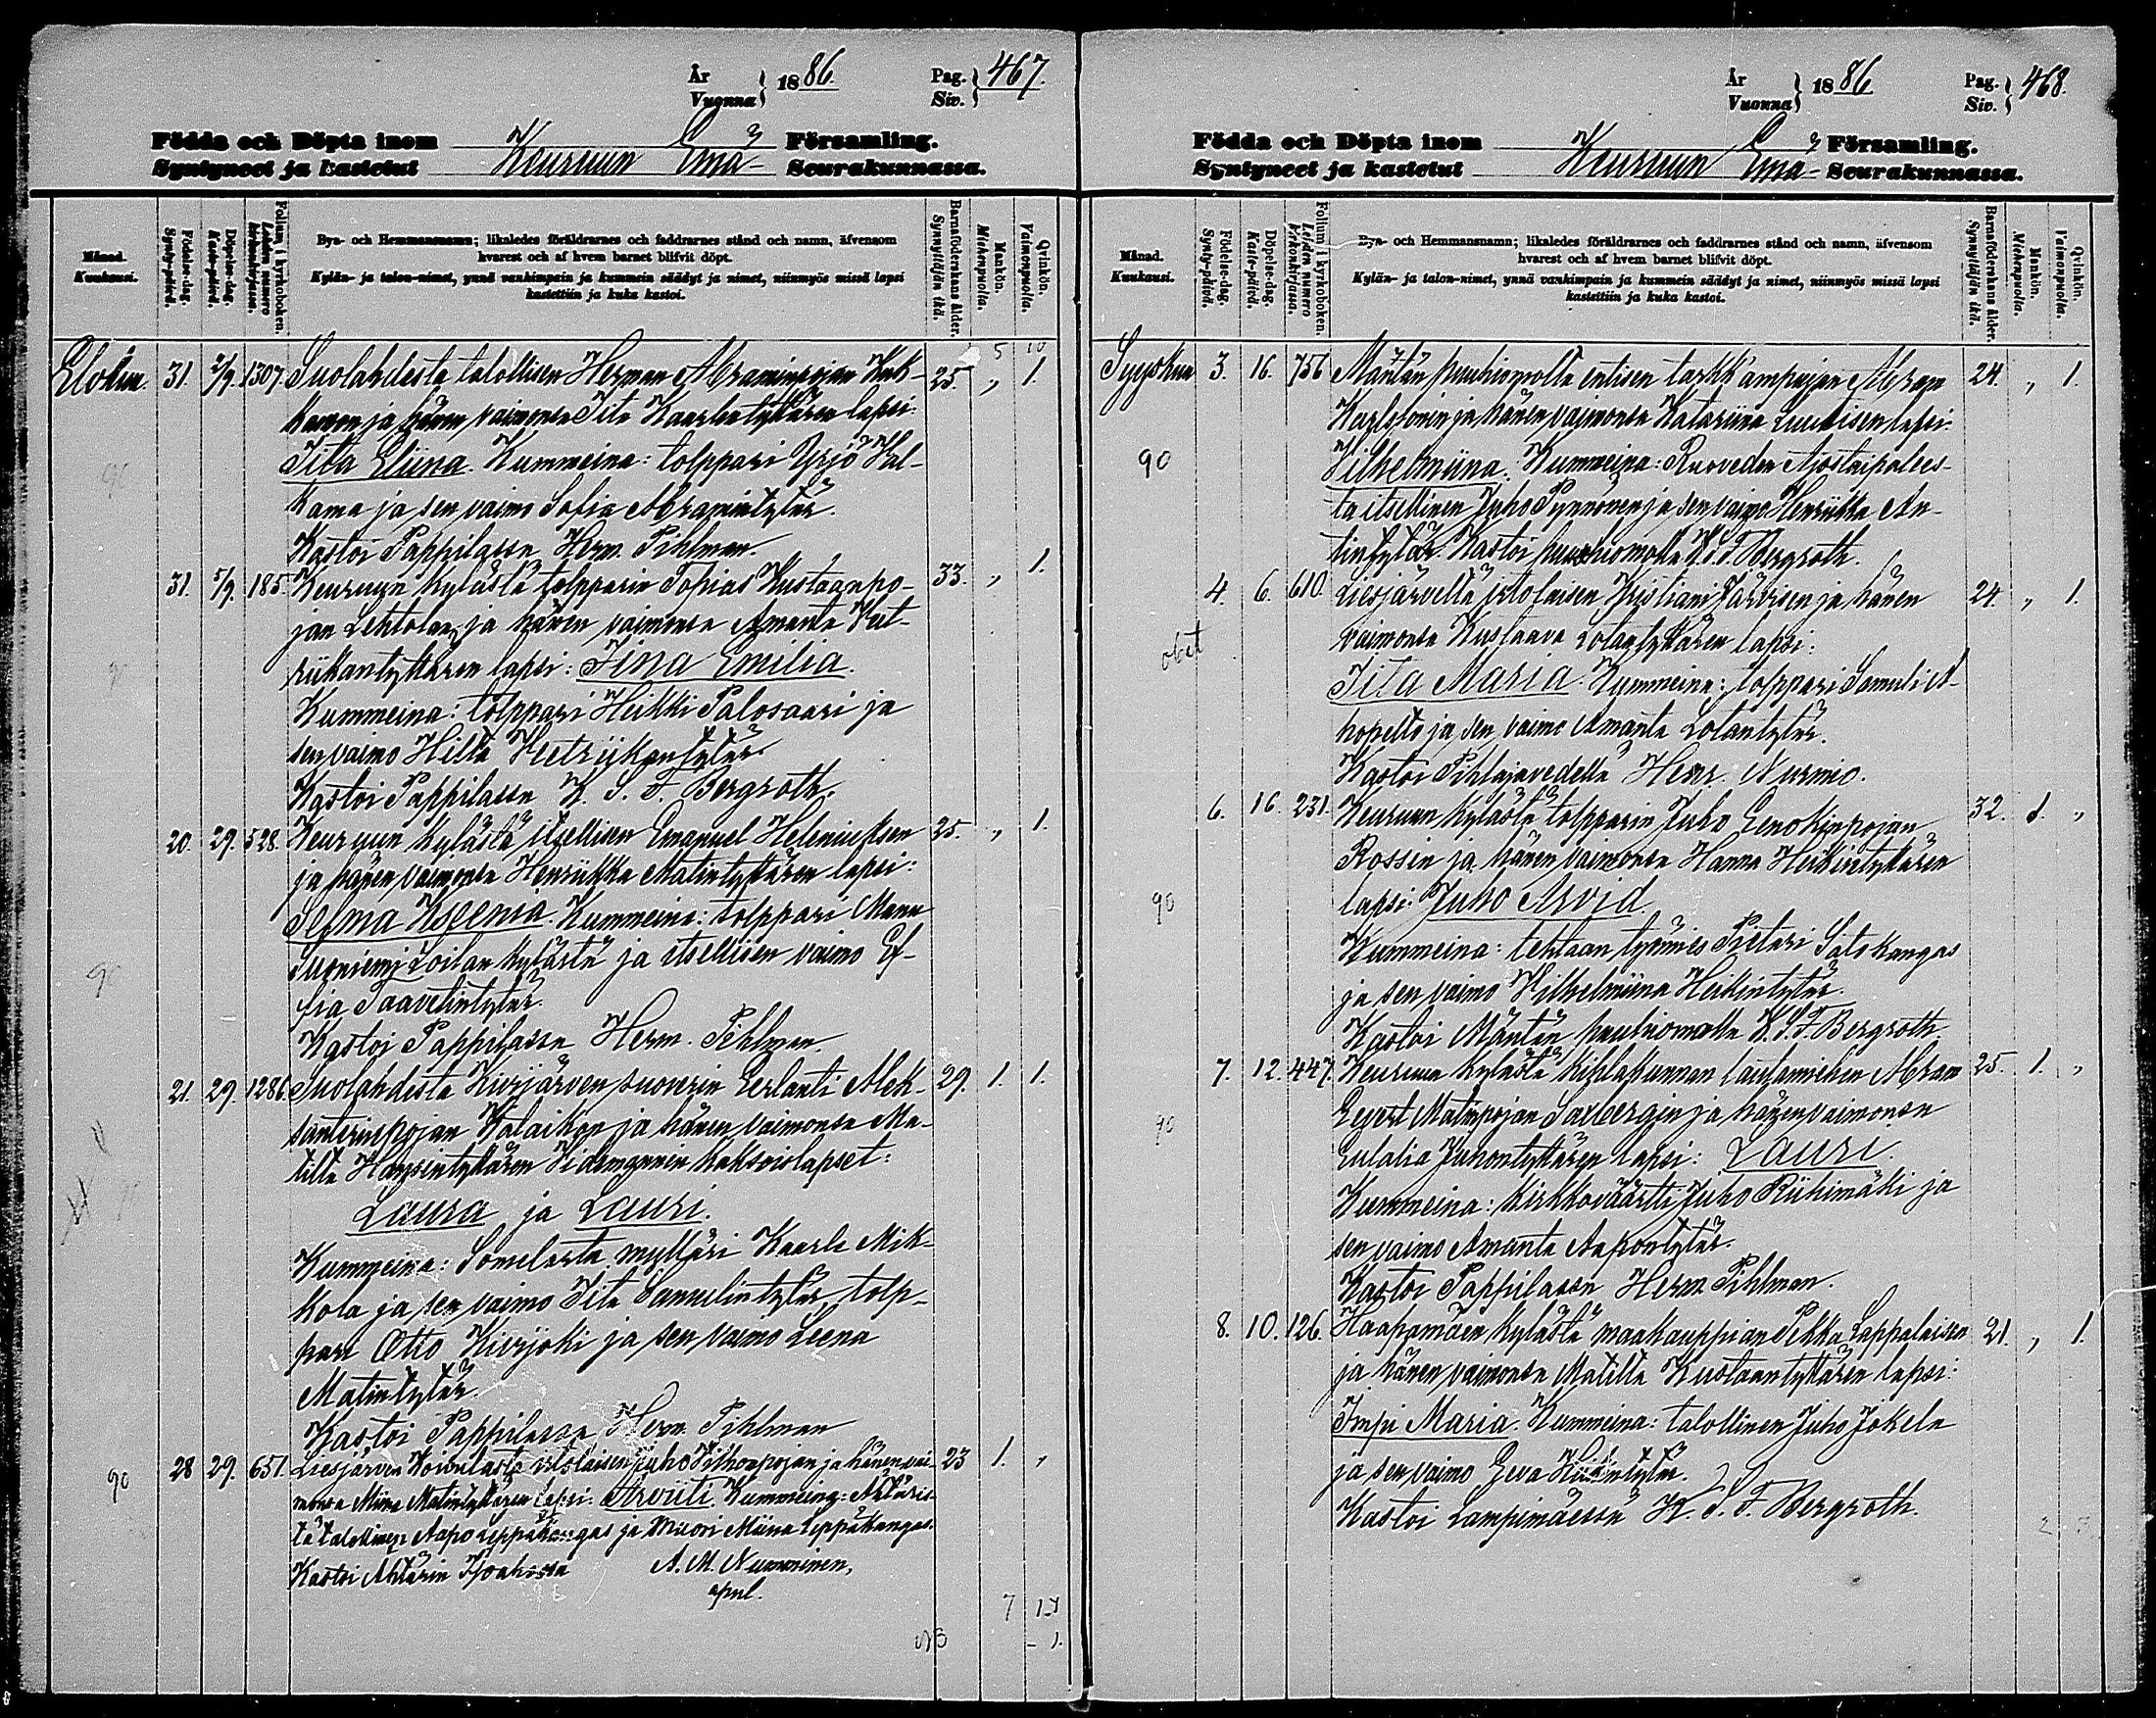 År
Vuonna } 1886.
Pag.
Siv. } 467.
Födda och Döpta inom Församling.
Syntyneet ja kastetut Keuruun Emä- Seurakunnassa.
Månad.
Kuukausi.
Födelse-dag.
Synty-päivä.
Döpelse-dag.
Kaste-päivä.
Folium i kyrkoboken.
Lehden numero
kirkonkirjassa.
Bya- och Hemmansnamn; likaledes föräldrarnes och faddrarnes stånd och namn, äfvensom
hvarest och af hvem barnet blifvit döpt.
Kylän- ja talon-nimet, ynnä vanhimpain ja kummein säädyt ja nimet, niinmyös missä lapsi
kastettiin ja kuka kastoi.
Barnaföderskans ålder.
Synnyttäjän ikä.
Mankön.
Miehenpuolta.
Qvinkön.
Vaimonpuolta.
5 10
Elokuu. 31. 2/9. 1307. Suolahdesta talollisen Herman Abraminpojan Kuk- 25. „ 1.
kavon ja hänen vaimonsa Iita Kaarlentyttären lapsi:
Iita Eliina. Kummeina: tolppari Yrjö Val-
kama ja sen vaimo Sofia Abramintytär.
Kastoi Pappilassa Herm. Pihlman.
31. 5/9. 185. Keuruun kylästä tolpparin Topias Kustaanpo- 33. „ 1.
jan Lehtolan ja hänen vaimonsa Amanta Veet-
riikantyttären lapsi: Fina Emilia.
Kummeina: tolppari Heikki Palosaari ja
sen vaimo Hilta Veetriikantytär.
Kastoi Pappilassa K. S. F. Bergroth.
20. 29. 528. Keuruun kylästä itsellisen Emanuel Heleniuksen 25. „ 1.
ja hänen vaimonsa Henriikka Matintyttären lapsi:
Selma Ksenia. Kummeina: tolppari Manu
Suoniemi Loilan kylästä ja itsellisen vaimo Ef-
fia Taavetintytär.
Kastoi Pappilassa Herm. Pihlman.
21. 29. 1286. Suolahdesta Kivijärven suoverin Eerlanti Alek- 29. 1. 1.
santerinpojan Valaikon ja hänen vaimonsa Ma-
tilta Hansintyttären Videmannin kaksoislapset:
Laura ja Lauri.
Kummeina: Somelasta mylläri Kaarle Mik-
kola ja sen vaimo Iita Samulintytär, tolp-
pari Otto Kivijoki ja sen vaimo Leena
Matintytär.
Kastoi Pappilassa Herm. Pihlman
90 28 29. 651. Liesjärven Koivulasta irtolaisen Juho Vihtoapojan ja hänen vai- 23 1. „
monsa Miina Matintyttären lapsi: Arviiti. Kummeina: Ähtäris-
tä talollinen Aapo Leppäkangas ja Miiori Miina Leppäkangas.
Kastoi Ähtärin A. M. Numminen,
apul.
7
År
Vuonna } 1886
Pag.
Siv. } 468.
Födda och Döpta inom Församling.
Syntyneet ja kastetut Keuruun Emä- Seurakunnassa.
Månad.
Kuukausi.
Födelse-dag.
Synty-päivä.
Döpelse-dag.
Kaste-päivä.
Folium i kyrkoboken.
Lehden numero
kirkonkirjassa.
Bya- och Hemmansnamn; likaledes föräldrarnes och faddrarnes stånd och namn, äfvensom
hvarest och af hvem barnet blifvit döpt.
Kylän- ja talon-nimet, ynnä vanhimpain ja kummein säädyt ja nimet, niinmyös missä lapsi
kastettiin ja kuka kastoi.
Barnaföderskans ålder.
Synnyttäjän ikä.
Mankön.
Miehenpuolta.
Qvinkön.
Vaimonpuolta.
Syyskuu 3. 16. 756 Mäntän puuhiomolta entisen tarkk'ampujan Abram 24. „ 1.
Karlstonin ja hänen vaimonsa Katariina Luukisen lapsi:
90 Vilhelmiina. Kummeina: Ruoveden Ajostaipalees-
ta itsellinen Juho Pynnönen ja sen vaimo Henriikka An-
tintytär. Kastoi puuhiomolla K. S. F. Bergroth.
4. 6. 610. Liesjärveltä irtolaisen Kristiani Järvisen ja hänen 24. „ 1.
vaimonsa Kustaava Lotantyttären lapsi:
Iita Maria. Kummeina: tolppari Samuli A-
hopelto ja sen vaimo Amanta Lotantytär.
Kastoi Pihlajavedellä Henr. Nurmio.
6. 16. 231. Keuruun kylästä tolpparin Juho Eenokinpojan 32. 1. „
Rossin ja hänen vaimonsa Hanna Heikintyttären
90 lapsi: Juho Arvid.
Kummeina: tehtaan työmies Pietari Salokangas
ja sen vaimo Vilhelmiina Heikintytär.
Kastoi Mäntän puuhiomolla K. S. F. Bergroth.
7. 12. 447. Keuruun kylästä Kihlakunnan lautamiehen Abram 25. 1. „
90 Eevert Matinpojan Saxbergin ja hänen vaimonsa
Eulalia Juhontyttären lapsi: Lauri.
Kummeina: Kirkkoväärtti Juho Riihimäki ja
sen vaimo Amanta Aapontytär.
Kastoi Pappilassa Herm. Pihlman.
8. 10. 126. Haapamäen kylästä maakauppian Pekka Lappalaisen 21. „ 1.
ja hänen vaimonsa Matilta Kustaantyttären lapsi:
Impi Maria. Kummeina: talollinen Juho Jokela
ja sen vaimo Eeva
Kastoi Lampimäessä K. S. F. Bergroth.